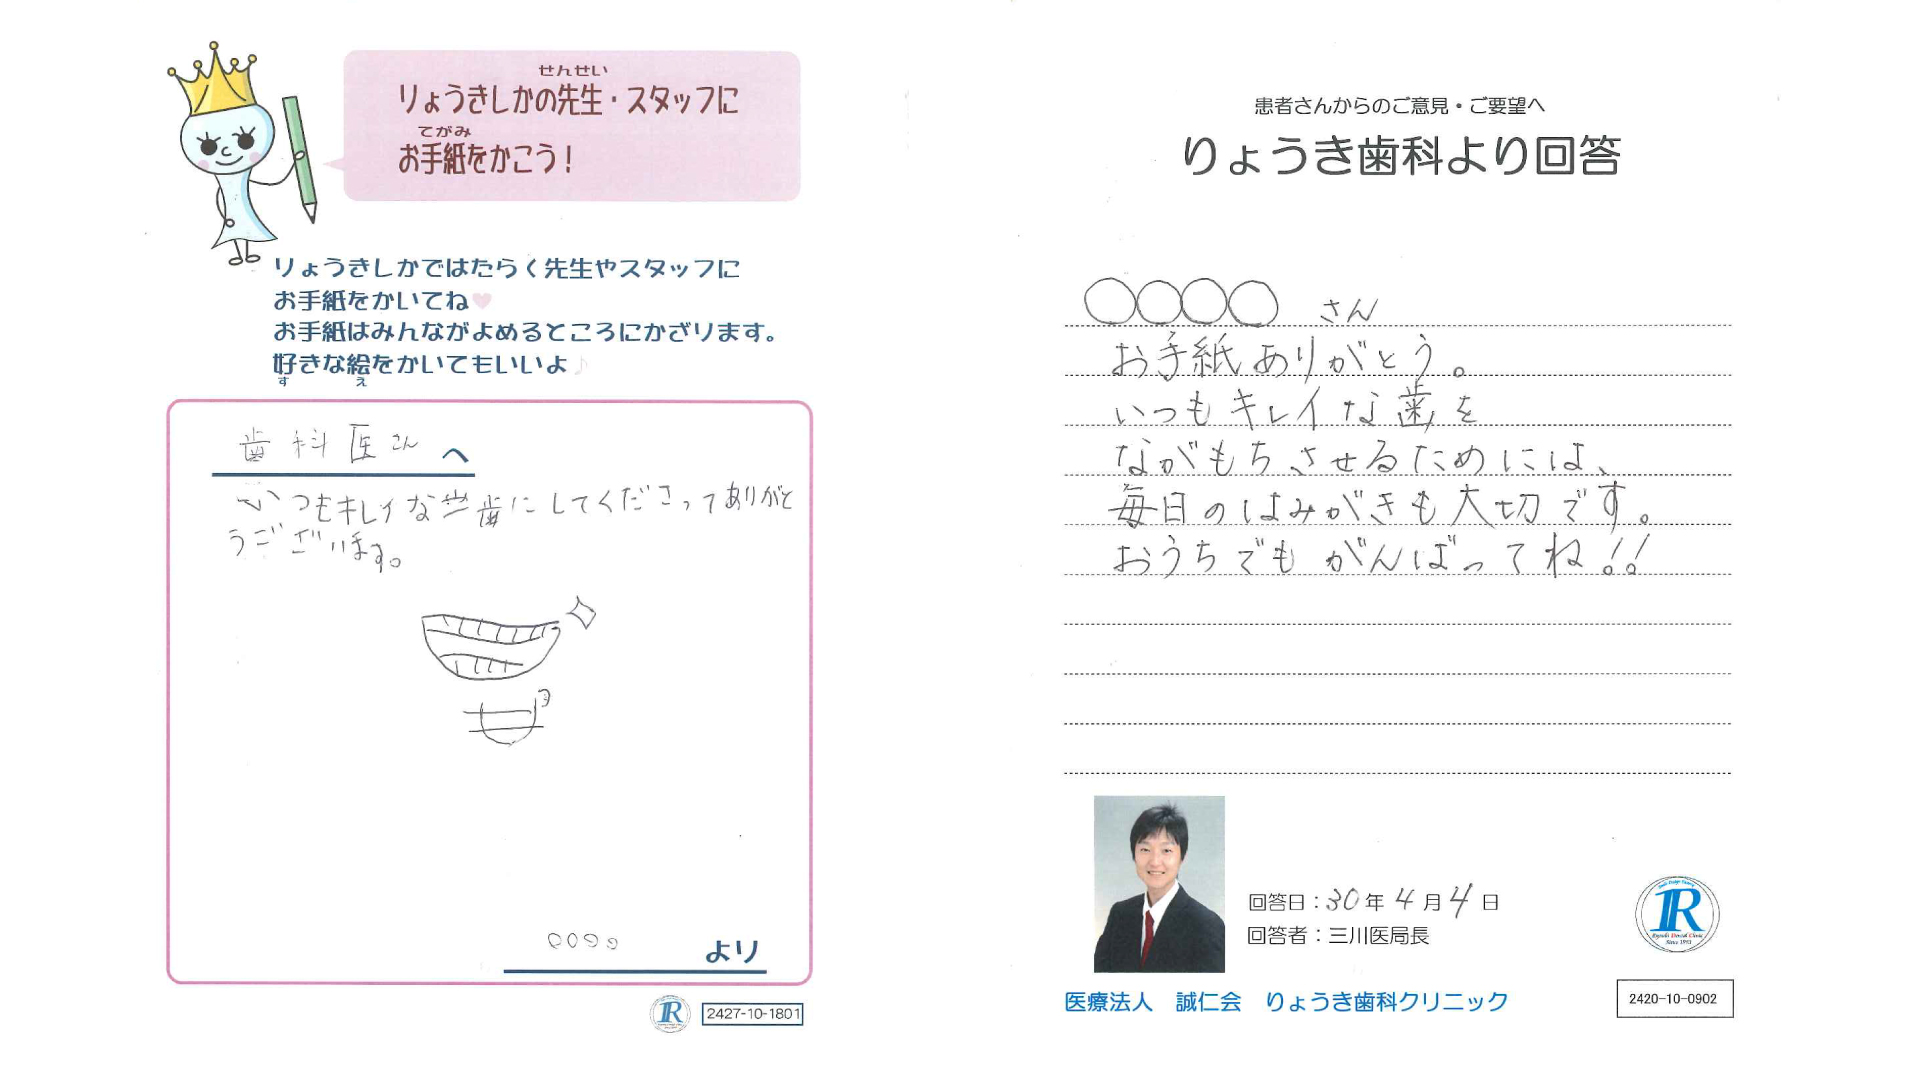 せんせい
りょうきしかの先生・スタッフに
てがみ
お手紙をかこう！
りょうきしかではたらく先生やスタッフに
お手紙をかいてね♥
お手紙はみんながよめるところにかざります。
好きな絵をかいてもいいよ♪
す え
歯科医さん へ
いつもキレイな歯にしてくださってありがと
うございます。
○○○○ より
2427-10-1801
患者さんからのご意見・ご要望へ
りょうき歯科より回答
○○○○ さん
お手紙ありがとう。
いつもキレイな歯を
ながもちさせるためには、
毎日のはみがきも大切です。
おうちでもがんばってね!!
回答日：30年4月4日
回答者：三川医局長
R
Since 1993
医療法人 誠仁会 りょうき歯科クリニック
2420-10-0902